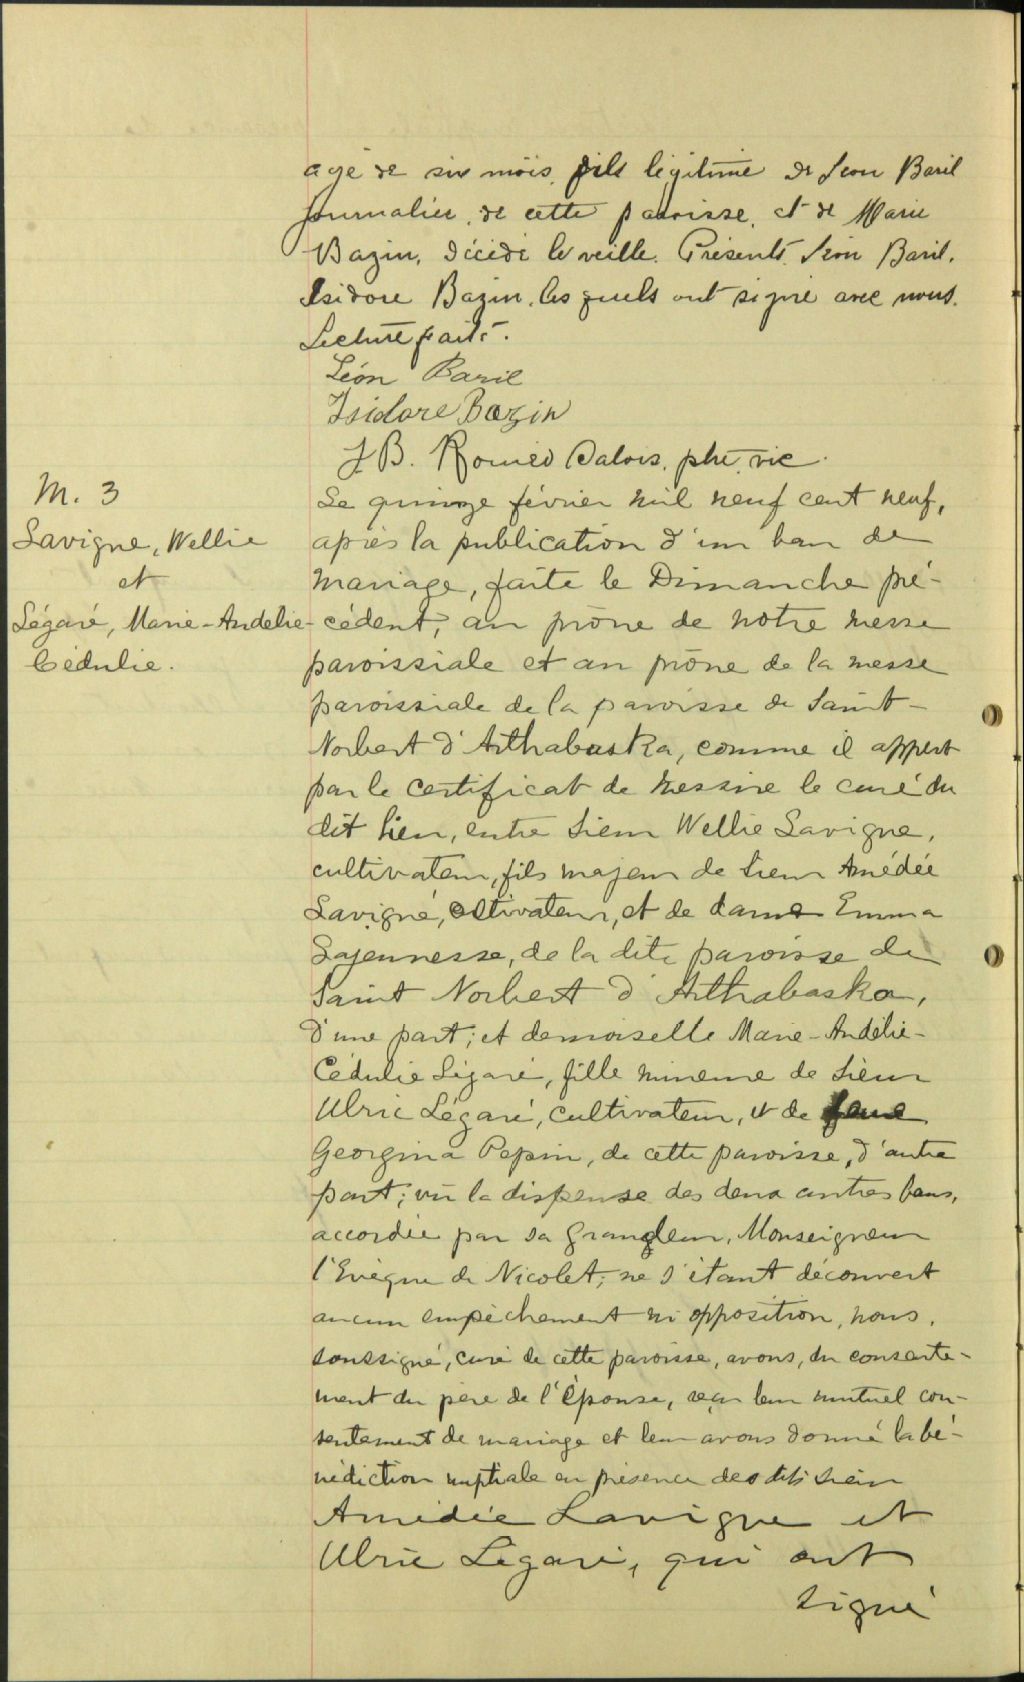 agé de six mois, fils légitime de Léon Baril
journalier, de cette paroisse, et de Marie
Bazin, décédé la veille. Présents Léon Baril,
Isidore Bazin, lesquels ont signé avec nous.
Lecture faite.
Léon Baril
Isidore Bazin
J. B. Roméo Dalois, ptre, vic.
M. 3
Lavigne, Wellie
et
Légaré, Marie-Andélie-
Cédulie.
Le quinze février mil neuf cent neuf,
après la publication d'un ban de
mariage, faite le Dimanche pré-
cédent, au prône de notre messe
paroissiale et au prône de la messe
paroissiale de la paroisse de Saint-
Norbert d'Arthabaska, comme il appert
par le certificat de Messire le curé du
dit lieu, entre Sieur Wellie Lavigne,
cultivateur, fils majeur de Sieur Amédée
Lavigne, cultivateur, et de dame Emma
Lajeunesse, de la dite paroisse de
Saint Norbert d'Arthabaska,
d'une part; et demoiselle Marie-Andélie-
Cédulie Légaré, fille mineure de Sieur
Ulric Légaré, cultivateur, et de feue
Georgina Pepin, de cette paroisse, d'autre
part; vu la dispense des deux autres bans,
accordée par sa Grandeur, Monseigneur
l'Evêque de Nicolet; ne s'étant découvert
aucun empêchement ni opposition, nous,
soussigné, curé de cette paroisse, avons, du consente-
ment du père de l'épouse, reçu leur mutuel con-
sentement de mariage et leur avons donné la bé-
nédiction nuptiale en présence des dits Sieur
Amédée Lavigne et
Ulric Légaré, qui ont
signé